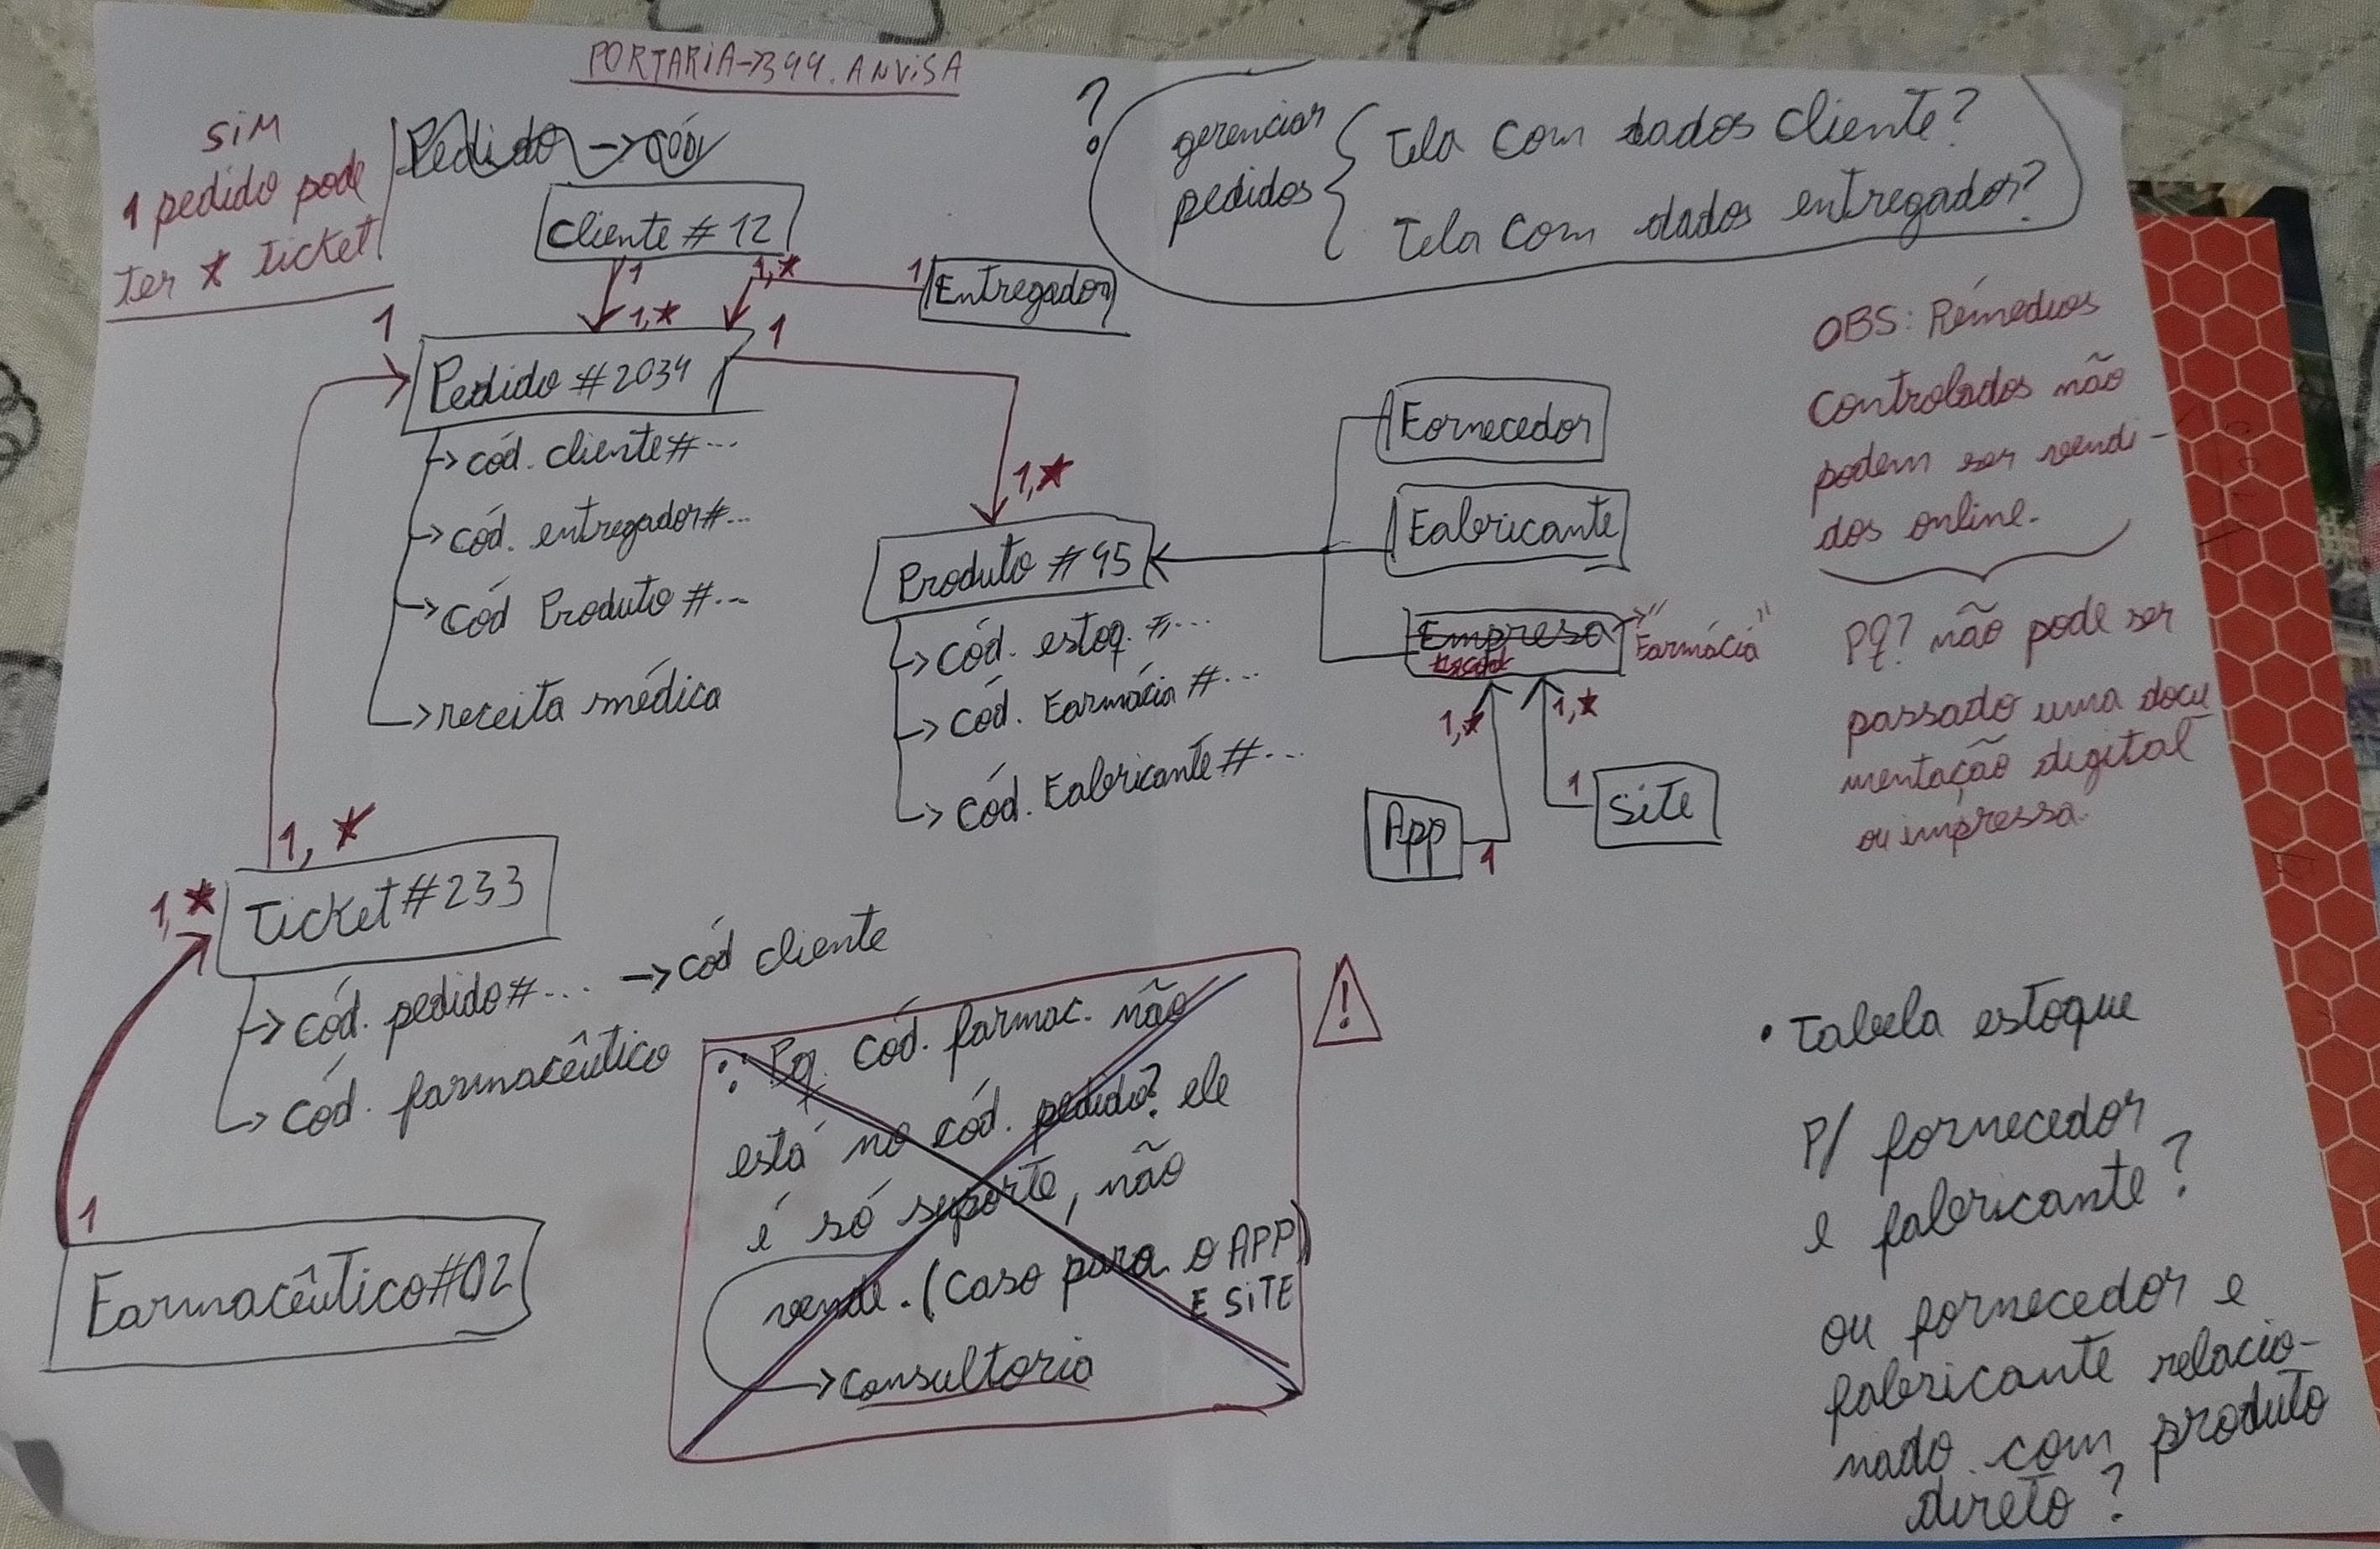 PORTARIA->344. ANVISA
SIM
1 pedido pode
ter * ticket
Pedido -> cód
?
gerenciar
pedidos
Tela com dados cliente?
Tela com dados entregador?
Cliente #12
1
1,*
1
Entregador
1,*
1
1
Pedido #2034
-> cód. cliente #...
-> cód. entregador #...
-> cód Produto #...
-> receita médica
1,*
Produto #45
-> cód. estoq. #...
-> cód. Farmácia #...
-> cód. Fabricante #...
Fornecedor
Fabricante
Empresa -> "Farmácia"
1,*
1,*
App
1
1
Site
OBS: Remédios
Controlados não
podem ser vendi-
dos online.
Pq? não pode ser
passado uma docu
mentação digital
ou impressa.
1,*
1,*
Ticket #233
-> cód. pedido #... -> cód cliente
-> cód. farmacêutico
1
Farmacêutico #02
Pq. cód. farmac. não
está no cód. pedido? ele
é só suporte, não
vende. (Caso para o APP)
E SITE
-> consultoria
!
• Tabela estoque
P/ fornecedor
e fabricante?
ou fornecedor e
fabricante relacio-
nado com produto
direto?